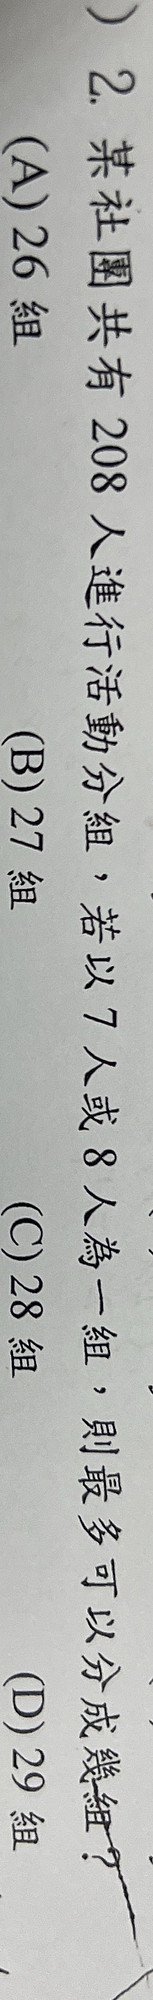 ) 2. 某社團共有 208 人進行活動分組，若以 7 人或 8 人為一組，則最多可以分成幾組？
(A) 26 組 (B) 27 組 (C) 28 組 (D) 29 組